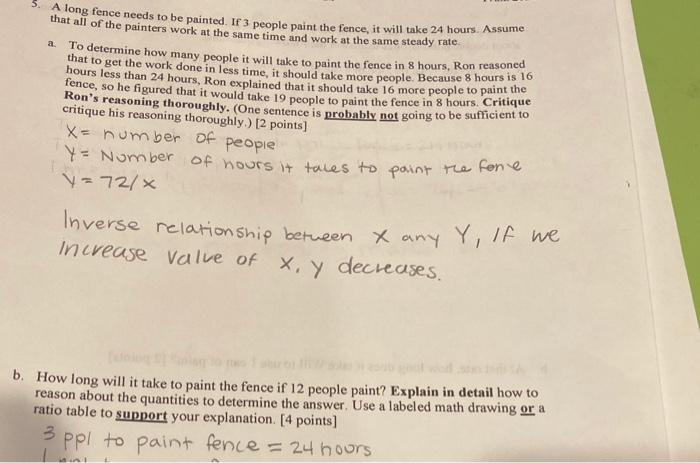 5. A long fence needs to be painted. If 3 people paint the fence, it will take 24 hours. Assume
that all of the painters work at the same time and work at the same steady rate.
a. To determine how many people it will take to paint the fence in 8 hours, Ron reasoned
that to get the work done in less time, it should take more people. Because 8 hours is 16
hours less than 24 hours, Ron explained that it should take 16 more people to paint the
fence, so he figured that it would take 19 people to paint the fence in 8 hours. Critique
Ron's reasoning thoroughly. (One sentence is probably not going to be sufficient to
critique his reasoning thoroughly.) [2 points]
X= number of people
Y= Number of hours it takes to paint the fence
Y = 72/x
Inverse relationship between x any Y, If we
increase value of x, y decreases.
b. How long will it take to paint the fence if 12 people paint? Explain in detail how to
reason about the quantities to determine the answer. Use a labeled math drawing or a
ratio table to support your explanation. [4 points]
3 ppl to paint fence = 24 hours